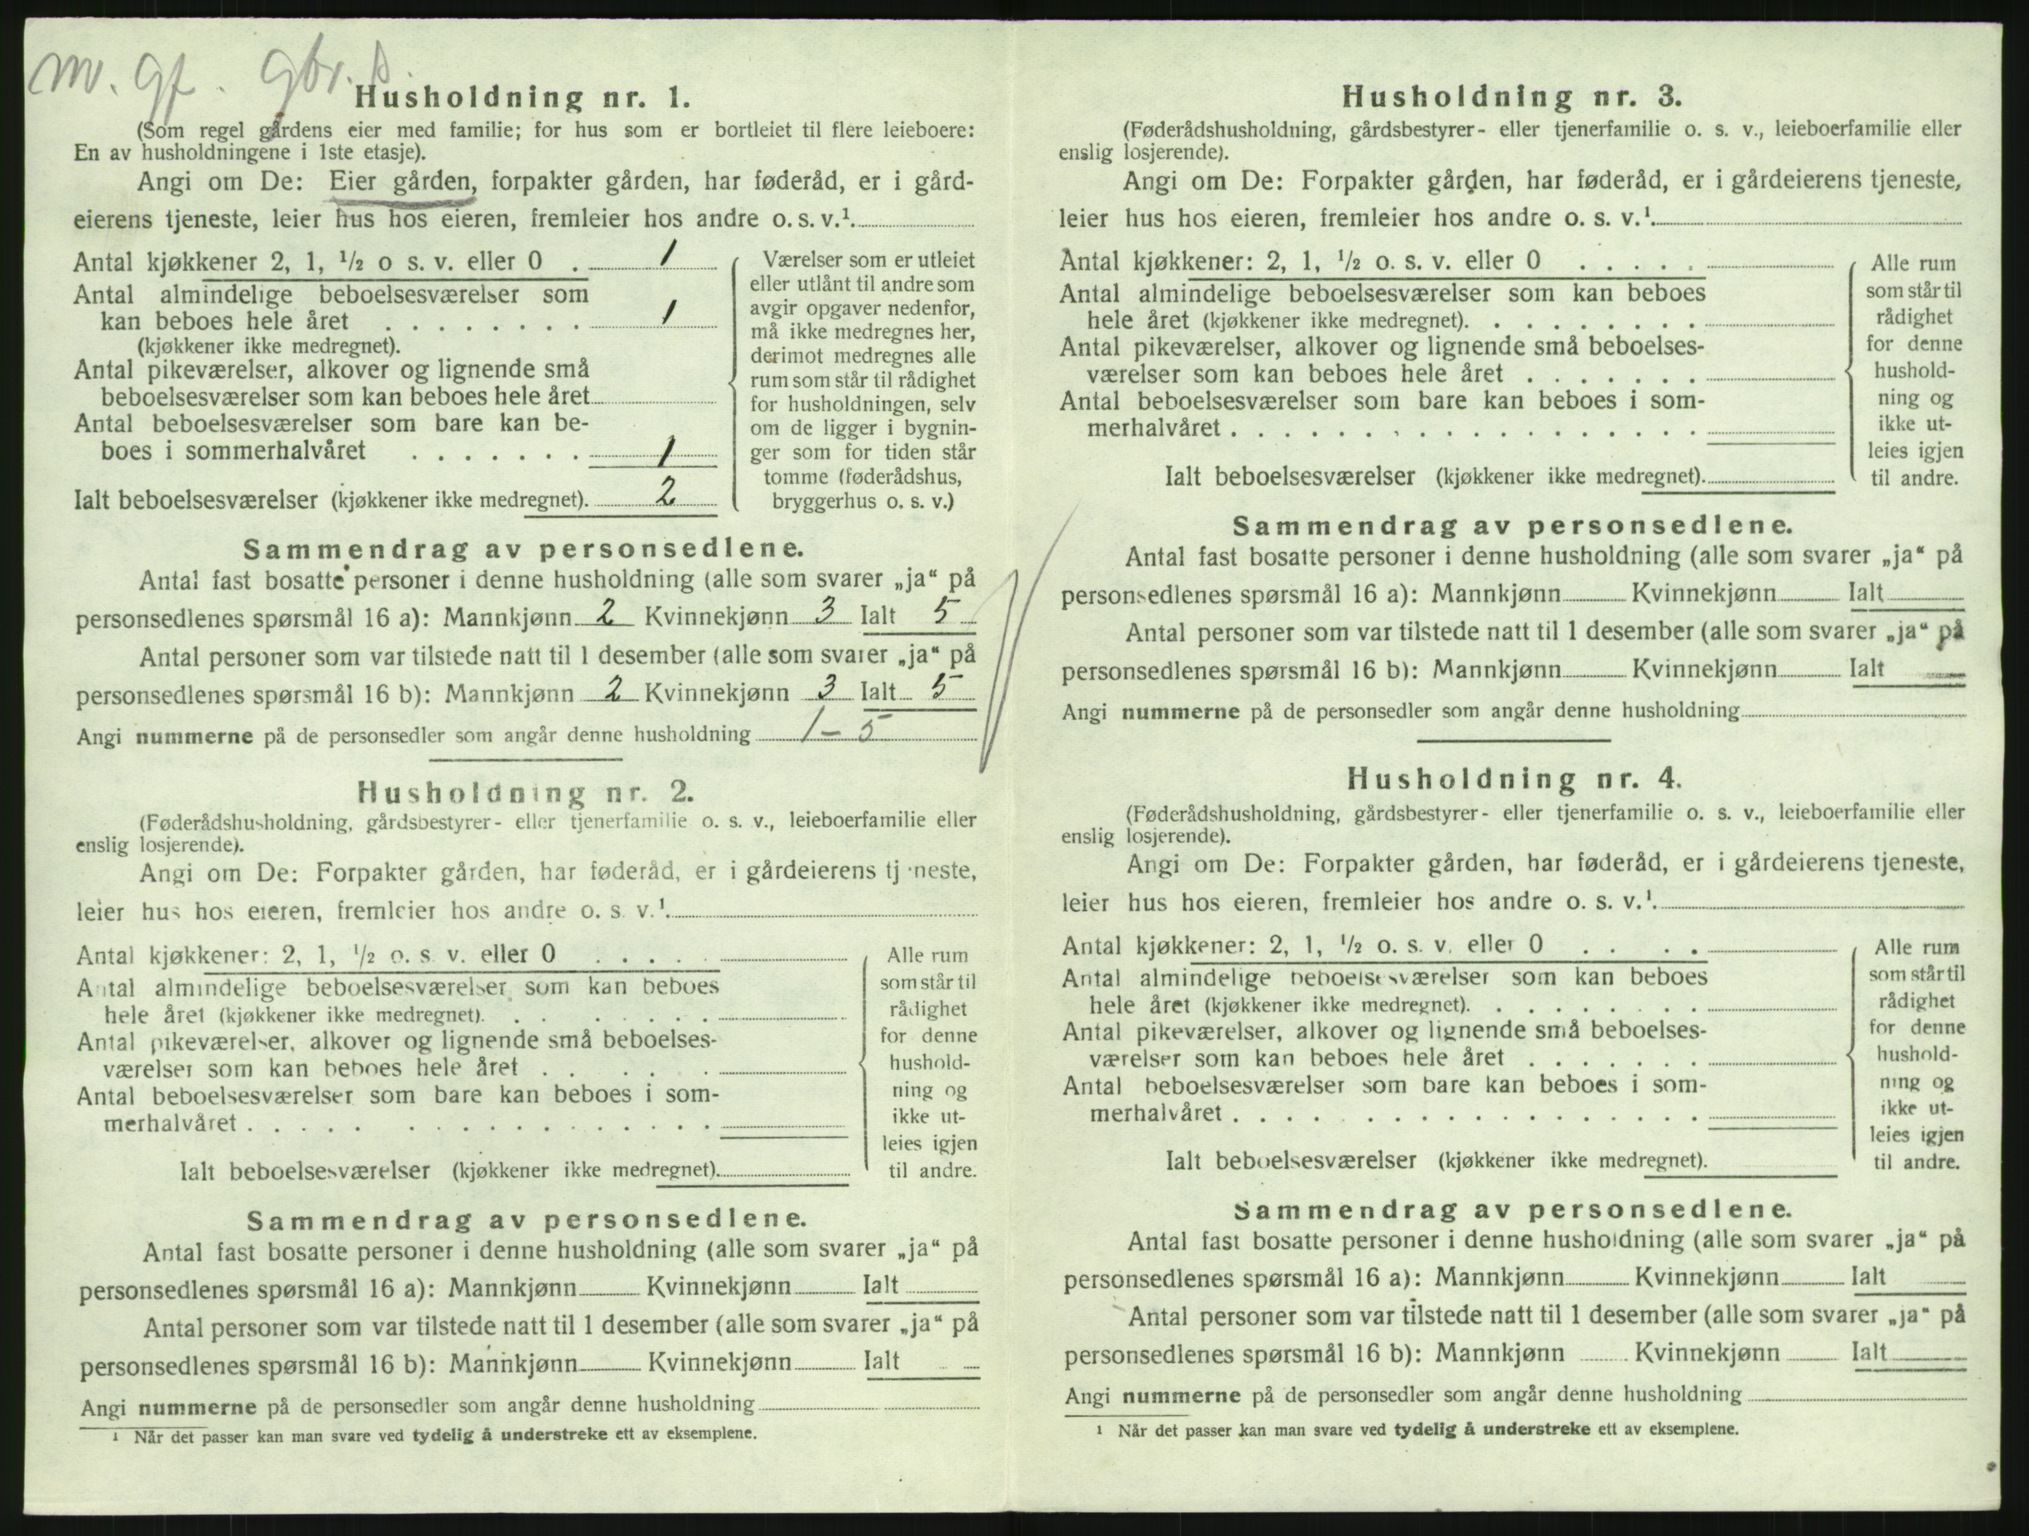 m. gf. gbr. s.
Husholdning nr. 1.
(Som regel gårdens eier med familie; for hus som er bortleiet til flere leieboere:
En av husholdningene i 1ste etasje).
Angi om De: Eier gården, forpakter gården, har føderåd, er i gård-
eierens tjeneste, leier hus hos eieren, fremleier hos andre o. s. v.¹.
Antal kjøkkener 2, 1, ½ o s. v. eller 0 . 1
Antal almindelige beboelsesværelser som
kan beboes hele året . . . . . . . . 1
(kjøkkener ikke medregnet).
Antal pikeværelser, alkover og lignende små
beboelsesværelser som kan beboes hele året
Antal beboelsesværelser som bare kan be-
boes i sommerhalvåret . . . . . . . 1
Ialt beboelsesværelser (kjøkkener ikke medregnet). 2
Værelser som er utleiet
eller utlånt til andre som
avgir opgaver nedenfor,
må ikke medregnes her,
derimot medregnes alle
rum som står til rådighet
for husholdningen, selv
om de ligger i bygnin-
ger som for tiden står
tomme (føderådshus,
bryggerhus o. s. v.)
Sammendrag av personsedlene.
Antal fast bosatte personer i denne husholdning (alle som svarer „ja“ på
personsedlenes spørsmål 16 a): Mannkjønn 2 Kvinnekjønn 3 Ialt 5
Antal personer som var tilstede natt til 1 desember (alle som svarer „ja“ på
personsedlenes spørsmål 16 b): Mannkjønn 2 Kvinnekjønn 3 Ialt 5
Angi nummerne på de personsedler som angår denne husholdning 1 – 5
Husholdning nr. 2.
(Føderådshusholdning, gårdsbestyrer- eller tjenerfamilie o. s. v., leieboerfamilie eller
enslig losjerende).
Angi om De: Forpakter gården, har føderåd, er i gårdeierens tjeneste,
leier hus hos eieren, fremleier hos andre o. s. v.¹.
Antal kjøkkener: 2, 1, ½ o. s. v. eller 0 . . . . .
Antal almindelige beboelsesværelser som kan beboes
hele året (kjøkkener ikke medregnet). . . . . . .
Antal pikeværelser, alkover og lignende små beboelses-
værelser som kan beboes hele året . . . . . .
Antal beboelsesværelser som bare kan beboes i som-
merhalvåret . . . . . . . . . . . . . . . . .
Ialt beboelsesværelser (kjøkkener ikke medregnet).
Alle rum
som står til
rådighet
for denne
hushold-
ning og
ikke ut-
leies igjen
til andre.
Sammendrag av personsedlene.
Antal fast bosatte personer i denne husholdning (alle som svarer „ja“ på
personsedlenes spørsmål 16 a): Mannkjønn Kvinnekjønn Ialt
Antal personer som var tilstede natt til 1 desember (alle som svarer „ja“ på
personsedlenes spørsmål 16 b): Mannkjønn Kvinnekjønn Ialt
Angi nummerne på de personsedler som angår denne husholdning
¹ Når det passer kan man svare ved tydelig å understreke ett av eksemplene.
Husholdning nr. 3.
(Føderådshusholdning, gårdsbestyrer- eller tjenerfamilie o. s. v., leieboerfamilie eller
enslig losjerende).
Angi om De: Forpakter gården, har føderåd, er i gårdeierens tjeneste,
leier hus hos eieren, fremleier hos andre o. s. v.¹.
Antal kjøkkener: 2, 1, ½ o. s. v. eller 0 . . . . .
Antal almindelige beboelsesværelser som kan beboes
hele året (kjøkkener ikke medregnet). . . . . . . .
Antal pikeværelser, alkover og lignende små beboelses-
værelser som kan beboes hele året . . . . . . .
Antal beboelsesværelser som bare kan beboes i som-
merhalvåret . . . . . . . . . . . . . . . . . .
Ialt beboelsesværelser (kjøkkener ikke medregnet).
Alle rum
som står til
rådighet
for denne
hushold-
ning og
ikke ut-
leies igjen
til andre.
Sammendrag av personsedlene.
Antal fast bosatte personer i denne husholdning (alle som svarer „ja“ på
personsedlenes spørsmål 16 a): Mannkjønn Kvinnekjønn Ialt
Antal personer som var tilstede natt til 1 desember (alle som svarer „ja“ på
personsedlenes spørsmål 16 b): Mannkjønn Kvinnekjønn Ialt
Angi nummerne på de personsedler som angår denne husholdning
Husholdning nr. 4.
(Føderådshusholdning, gårdsbestyrer- eller tjenerfamilie o. s. v., leieboerfamilie eller
enslig losjerende).
Angi om De: Forpakter gården, har føderåd, er i gårdeierens tjeneste,
leier hus hos eieren, fremleier hos andre o. s. v.¹.
Antal kjøkkener: 2, 1, ½ o. s. v. eller 0 . . . .
Antal almindelige beboelsesværelser som kan beboes
hele året (kjøkkener ikke medregnet). . . . . . . .
Antal pikeværelser, alkover og lignende små beboelses-
værelser som kan beboes hele året . . . . . . .
Antal beboelsesværelser som bare kan beboes i som-
merhalvåret . . . . . . . . . . . . . . . . . .
Ialt beboelsesværelser (kjøkkener ikke medregnet).
Alle rum
som står til
rådighet
for denne
hushold-
ning og
ikke ut-
leies igjen
til andre.
Sammendrag av personsedlene.
Antal fast bosatte personer i denne husholdning (alle som svarer „ja“ på
personsedlenes spørsmål 16 a): Mannkjønn Kvinnekjønn Ialt
Antal personer som var tilstede natt til 1 desember (alle som svarer „ja“ på
personsedlenes spørsmål 16 b): Mannkjønn Kvinnekjønn Ialt
Angi nummerne på de personsedler som angår denne husholdning
¹ Når det passer kan man svare ved tydelig å understreke ett av eksemplene.